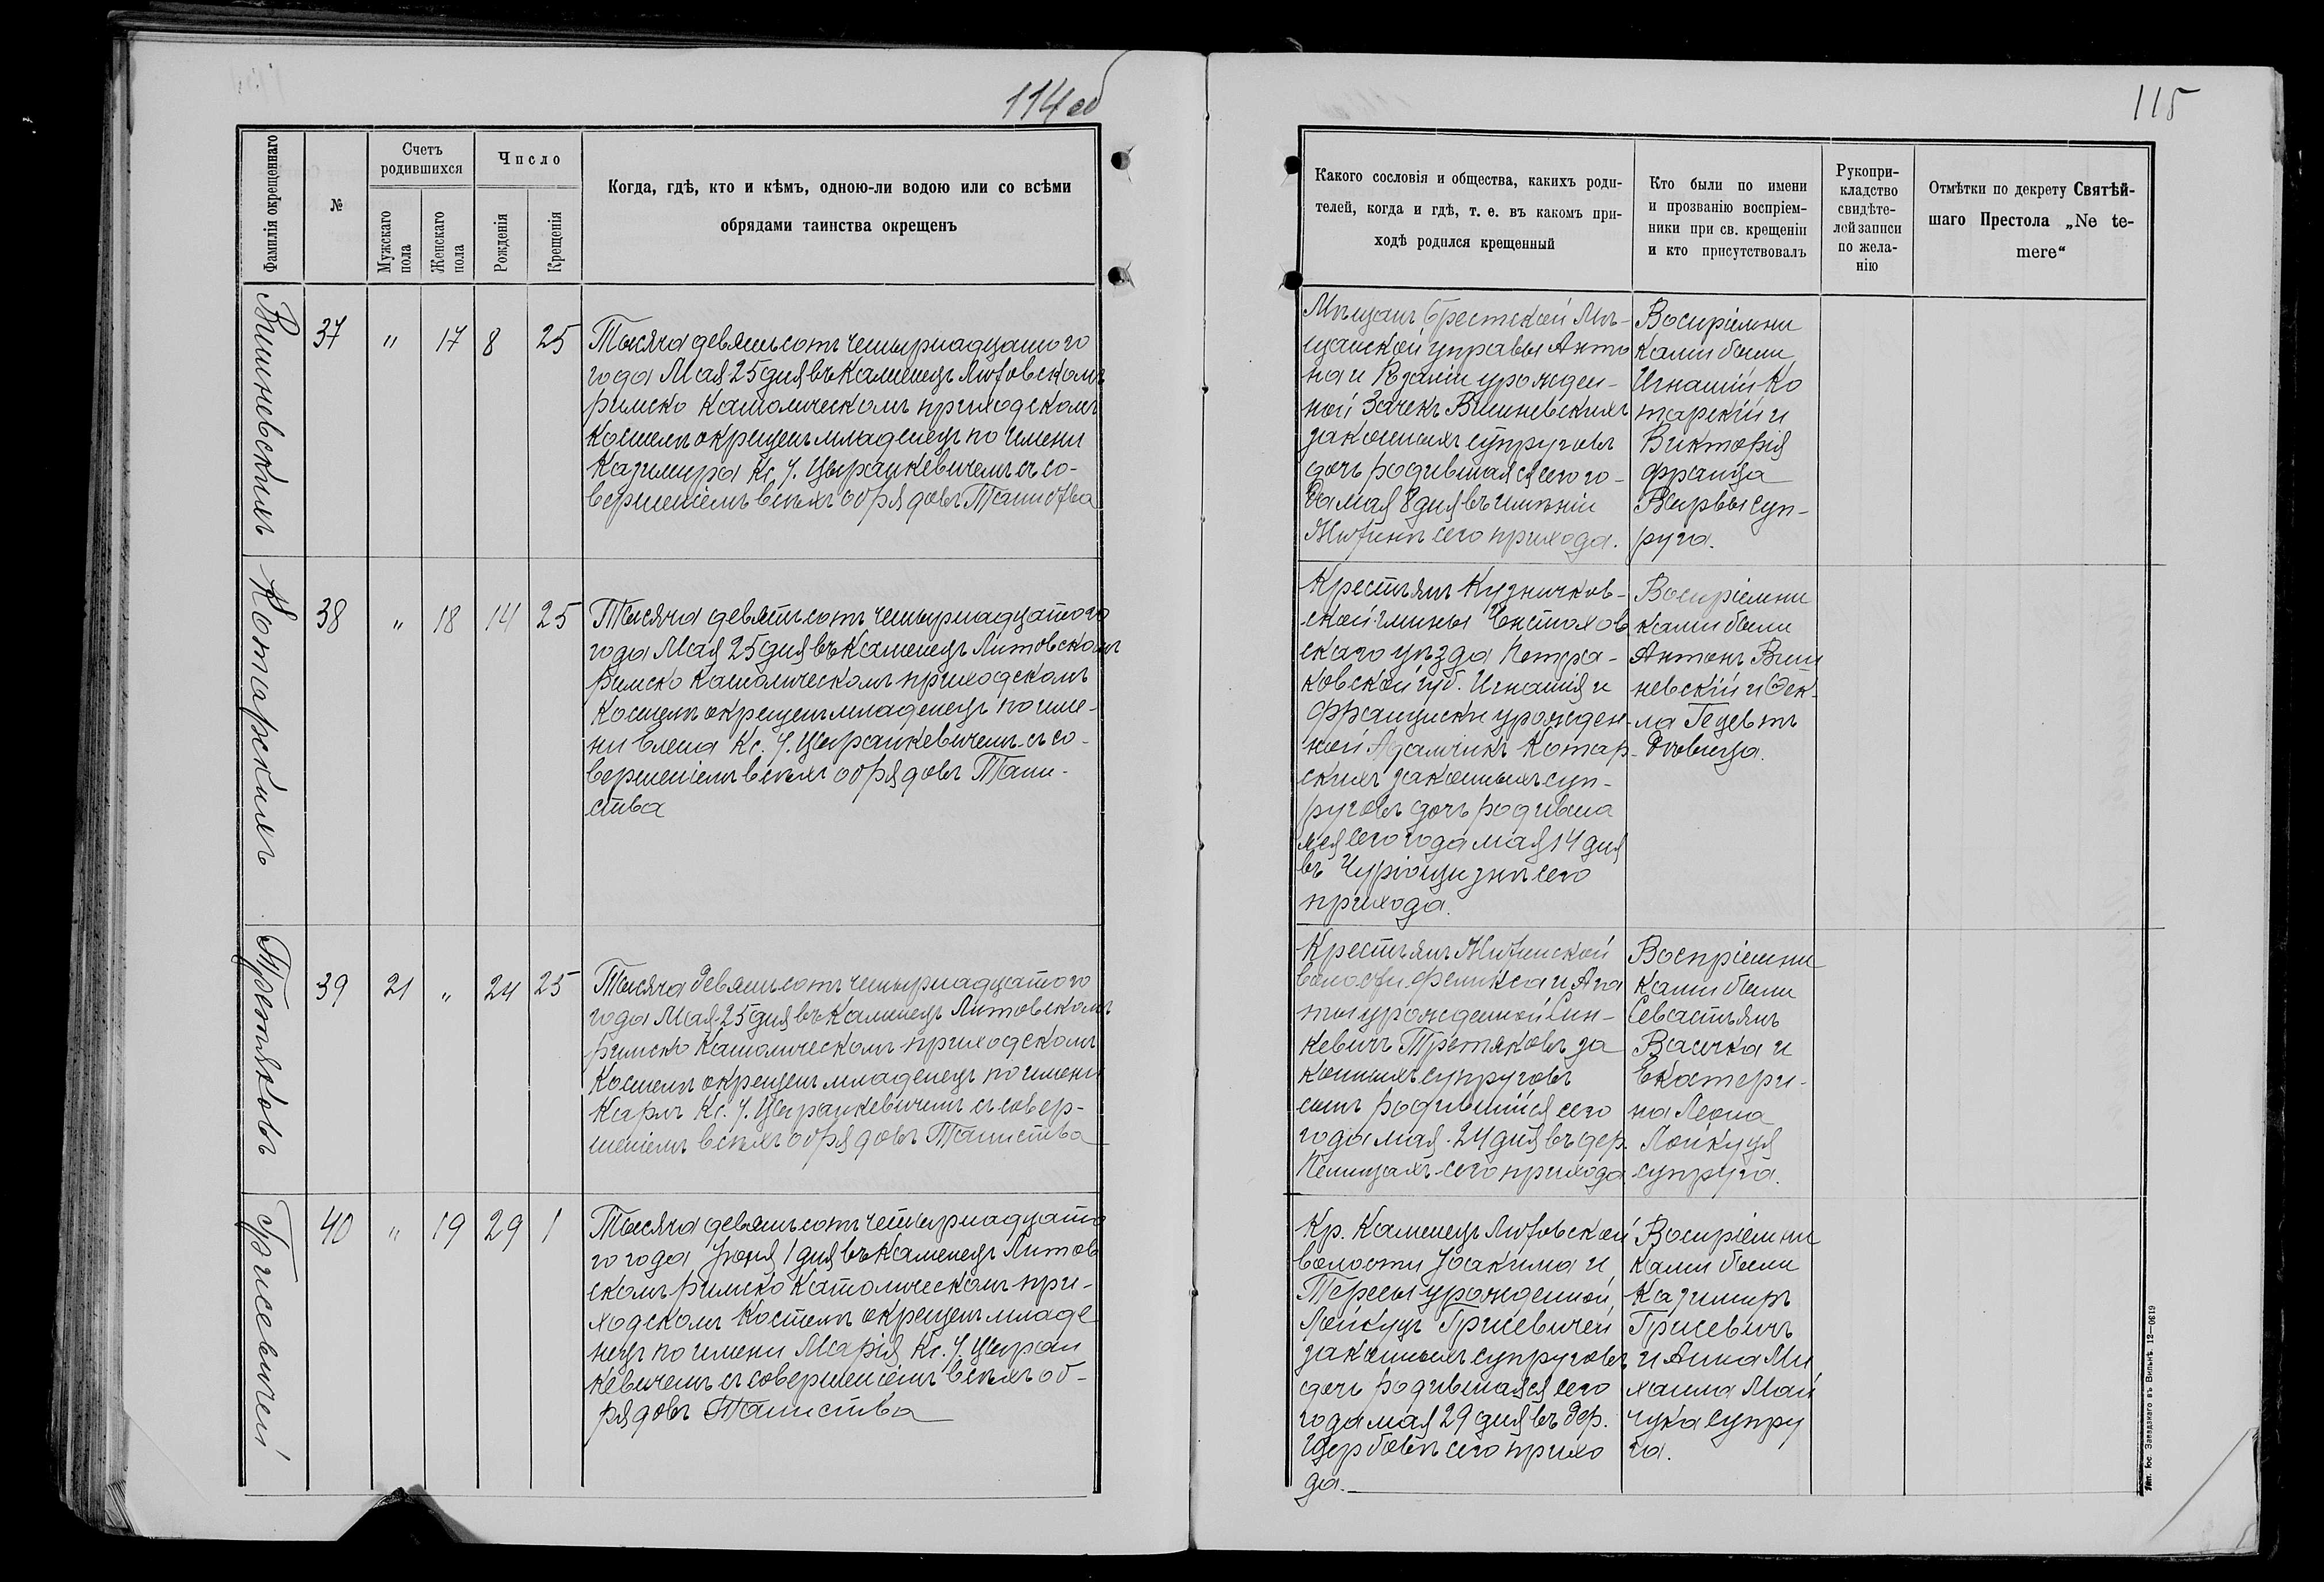 114 об
Фамилія окрещеннаго
№
Счетъ
родившихся
Мужскаго
пола
Женскаго
пола
Число
Рожденія
Крещенія
Когда, гдѣ, кто и кѣмъ, одною-ли водою или со всѣми
обрядами таинства окрещенъ
Вишневскихъ
37 " 17 8 25
Тысяча девятьсотъ четырнадцатого
года Мая 25 дня въ Каменецъ Литовскомъ
римско Католическомъ приходскомъ
Костелѣ окрещенъ младенецъ по имени
Казимира Кс. І. Цыранкевичемъ съ со-
вершеніемъ всѣхъ обрядовъ Таинства
Котарскихъ
38 " 18 14 25
Тысяча девятьсотъ четырнадцатого
года Мая 25 дня въ Каменецъ Литовскомъ
римско Католическомъ приходскомъ
Костелѣ окрещенъ младенецъ по име-
ни Елена Кс. І. Цыранкевичемъ съ со-
вершеніемъ всѣхъ обрядовъ Таин-
ства
Третяковъ
39 21 " 24 25
Тысяча девятьсотъ четырнадцатого
года Мая 25 дня въ Каменецъ Литовскомъ
римско Католическомъ приходскомъ
Костелѣ окрещенъ младенецъ по имени
Карлъ Кс. І. Цыранкевичемъ съ совер-
шеніемъ всѣхъ обрядовъ Таинства
Грисевичей
40 " 19 29 1
Тысяча девятьсотъ четырнадцато
го года Іюня 1 дня въ Каменецъ Литов
скомъ римско Католическомъ при-
ходскомъ Костелѣ окрещенъ младе
нецъ по имени Марія Кс. І. Цыран
кевичемъ съ совершеніемъ всѣхъ об-
рядовъ Таинства
115
Какого сословія и общества, какихъ роди-
телей, когда и гдѣ, т. е. въ какомъ при-
ходѣ родился крещенный
Кто были по имени
и прозванію воспріем-
ники при св. крещеніи
и кто присутствовалъ
Рукопри-
кладство
свидѣте-
лей записи
по жела-
нію
Отмѣтки по декрету Святѣй-
шаго Престола „Ne te-
mere“
Мѣщанъ Брестской Мѣ-
щанской управы Анто
на и Розаліи урожден-
ной Зачекъ Вишневскихъ
законныхъ супруговъ
дочь родившаяся сего го-
да мая 8 дня въ имѣніи
Житинѣ сего прихода.
Воспріемни
ками были
Игнатій Ко
тарскій и
Викторія
Франца
Вырвы суп-
руга.
Крестьянъ Кузничков-
ской гмины Ченстохов
скаго уѣзда Петра-
ковской губ. Игнатія и
Франциски урожден-
ной Адамчикъ Котар-
скихъ законныхъ суп-
руговъ дочь родивша
яся сего года мая 14 дня
въ сего
прихода.
Воспріемни
ками были
Антонъ Виш
невскій и Ѳек-
ла
вдовица.
Крестьянъ Житинской
волости Феликса и Ага
ты урожденной Син-
кевичъ Третяковъ за
конныхъ супруговъ
сынъ родившійся сего
года мая 24 дня въ дер.
сего прихода
Воспріемни
ками были
Севастьянъ
Васичка и
Екатери-
на Леона
Лойкуця
супруга.
Кр. Каменецъ Литовской
волости Іоакима и
Тересы урожденной
Лойкуцъ Грисевичей
законныхъ супруговъ
дочь родившаяся сего
года мая 29 дня въ дер.
Щербовѣ сего прихо
да.
Воспріемни
ками были
Казимиръ
Грисевичъ
и Анна Ми
хаила Май
чука супру
га.
Тип. Іос. Завадзкаго въ Вильнѣ. 12—0619